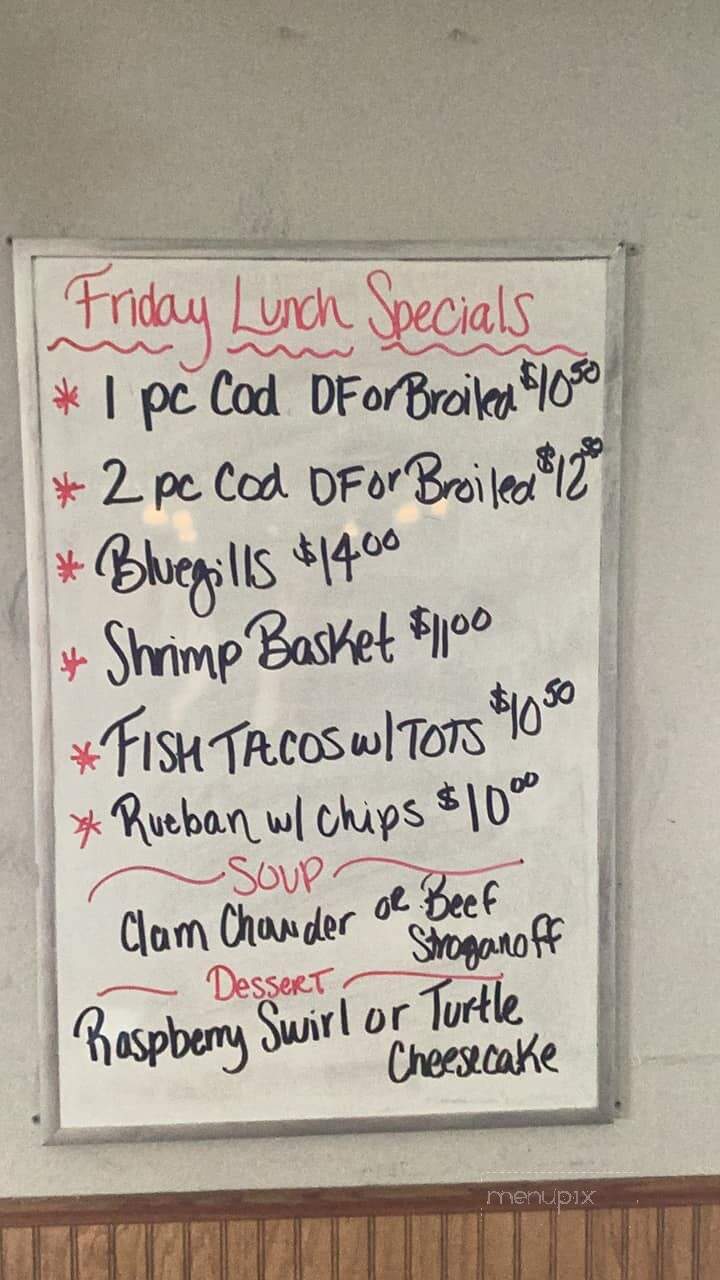 Friday Lunch Specials
* 1 pc Cod DF or Broiled $10.50
* 2 pc Cod DF or Broiled $12.50
* Bluegills $14.00
* Shrimp Basket $11.00
* FISH TACOS w/ TOTS $10.50
* Rueban w/ chips $10.00
SOUP
Clam Chowder or Beef
Stroganoff
Dessert
Raspberry Swirl or Turtle
Cheesecake
menupix